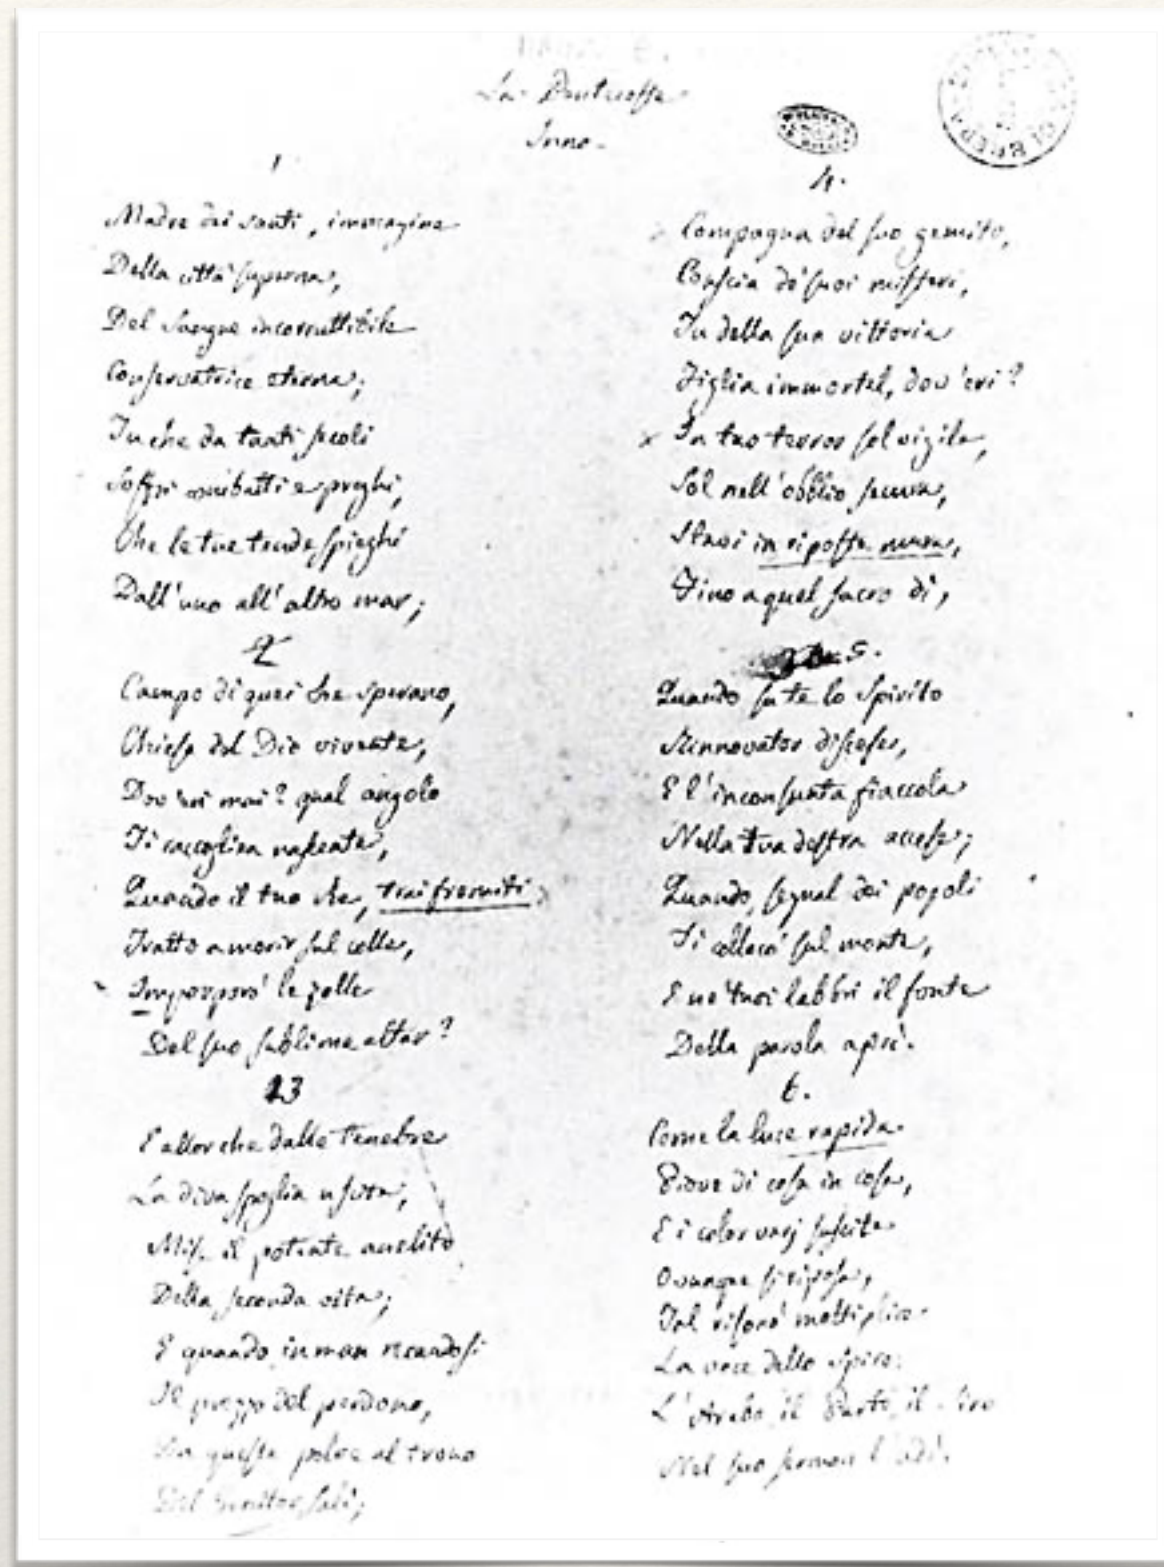 La Pentecoste
Inno.
1
Madre dei santi, immagine
Della città superna,
Del Sangue incorruttibile
Conservatrice eterna;
Tu che da tanti secoli
Soffri combatti e preghi,
Che le tue tende spieghi
Dall'uno all'altro mar;
2
Campo di quei che sperano,
Chiesa del Dio vivente,
Dov'eri mai? qual angolo
Ti raccogliea nascente,
Quando il tuo Re, trai fremiti
Tratto a morir sul colle,
Imporporò le zolle
Del suo sublime altar?
3
E allor che dalle tenebre
La diva spoglia uscita,
Mise il potente anelito
Della seconda vita;
E quando in man recandosi
Il prezzo del perdono,
Da questa polve al trono
Del Genitor salì;
4.
Compagna del suo gemito,
Conscia de' suoi misteri,
Tu della sua vittoria
Figlia immortal, dov'eri?
x In tuo terror sol vigile,
Sol nell'obblio secura,
Stavi in riposte mura,
Fino a quel sacro dì,
5.
Quando su te lo Spirito
Rinnovator discese,
E l'inconsunta fiaccola
Nella tua destra accese;
Quando, segnal dei popoli
Ti collocò sul monte,
E ne' tuoi labbri il fonte
Della parola aprì.
6.
Come la luce rapida
Piove di cosa in cosa,
E i color varj suscita
Ovunque si riposa,
Tal risonò moltiplice
La voce dello Spiro:
L'Arabo il Parto, il Siro
Nel suo sermon l'udì.